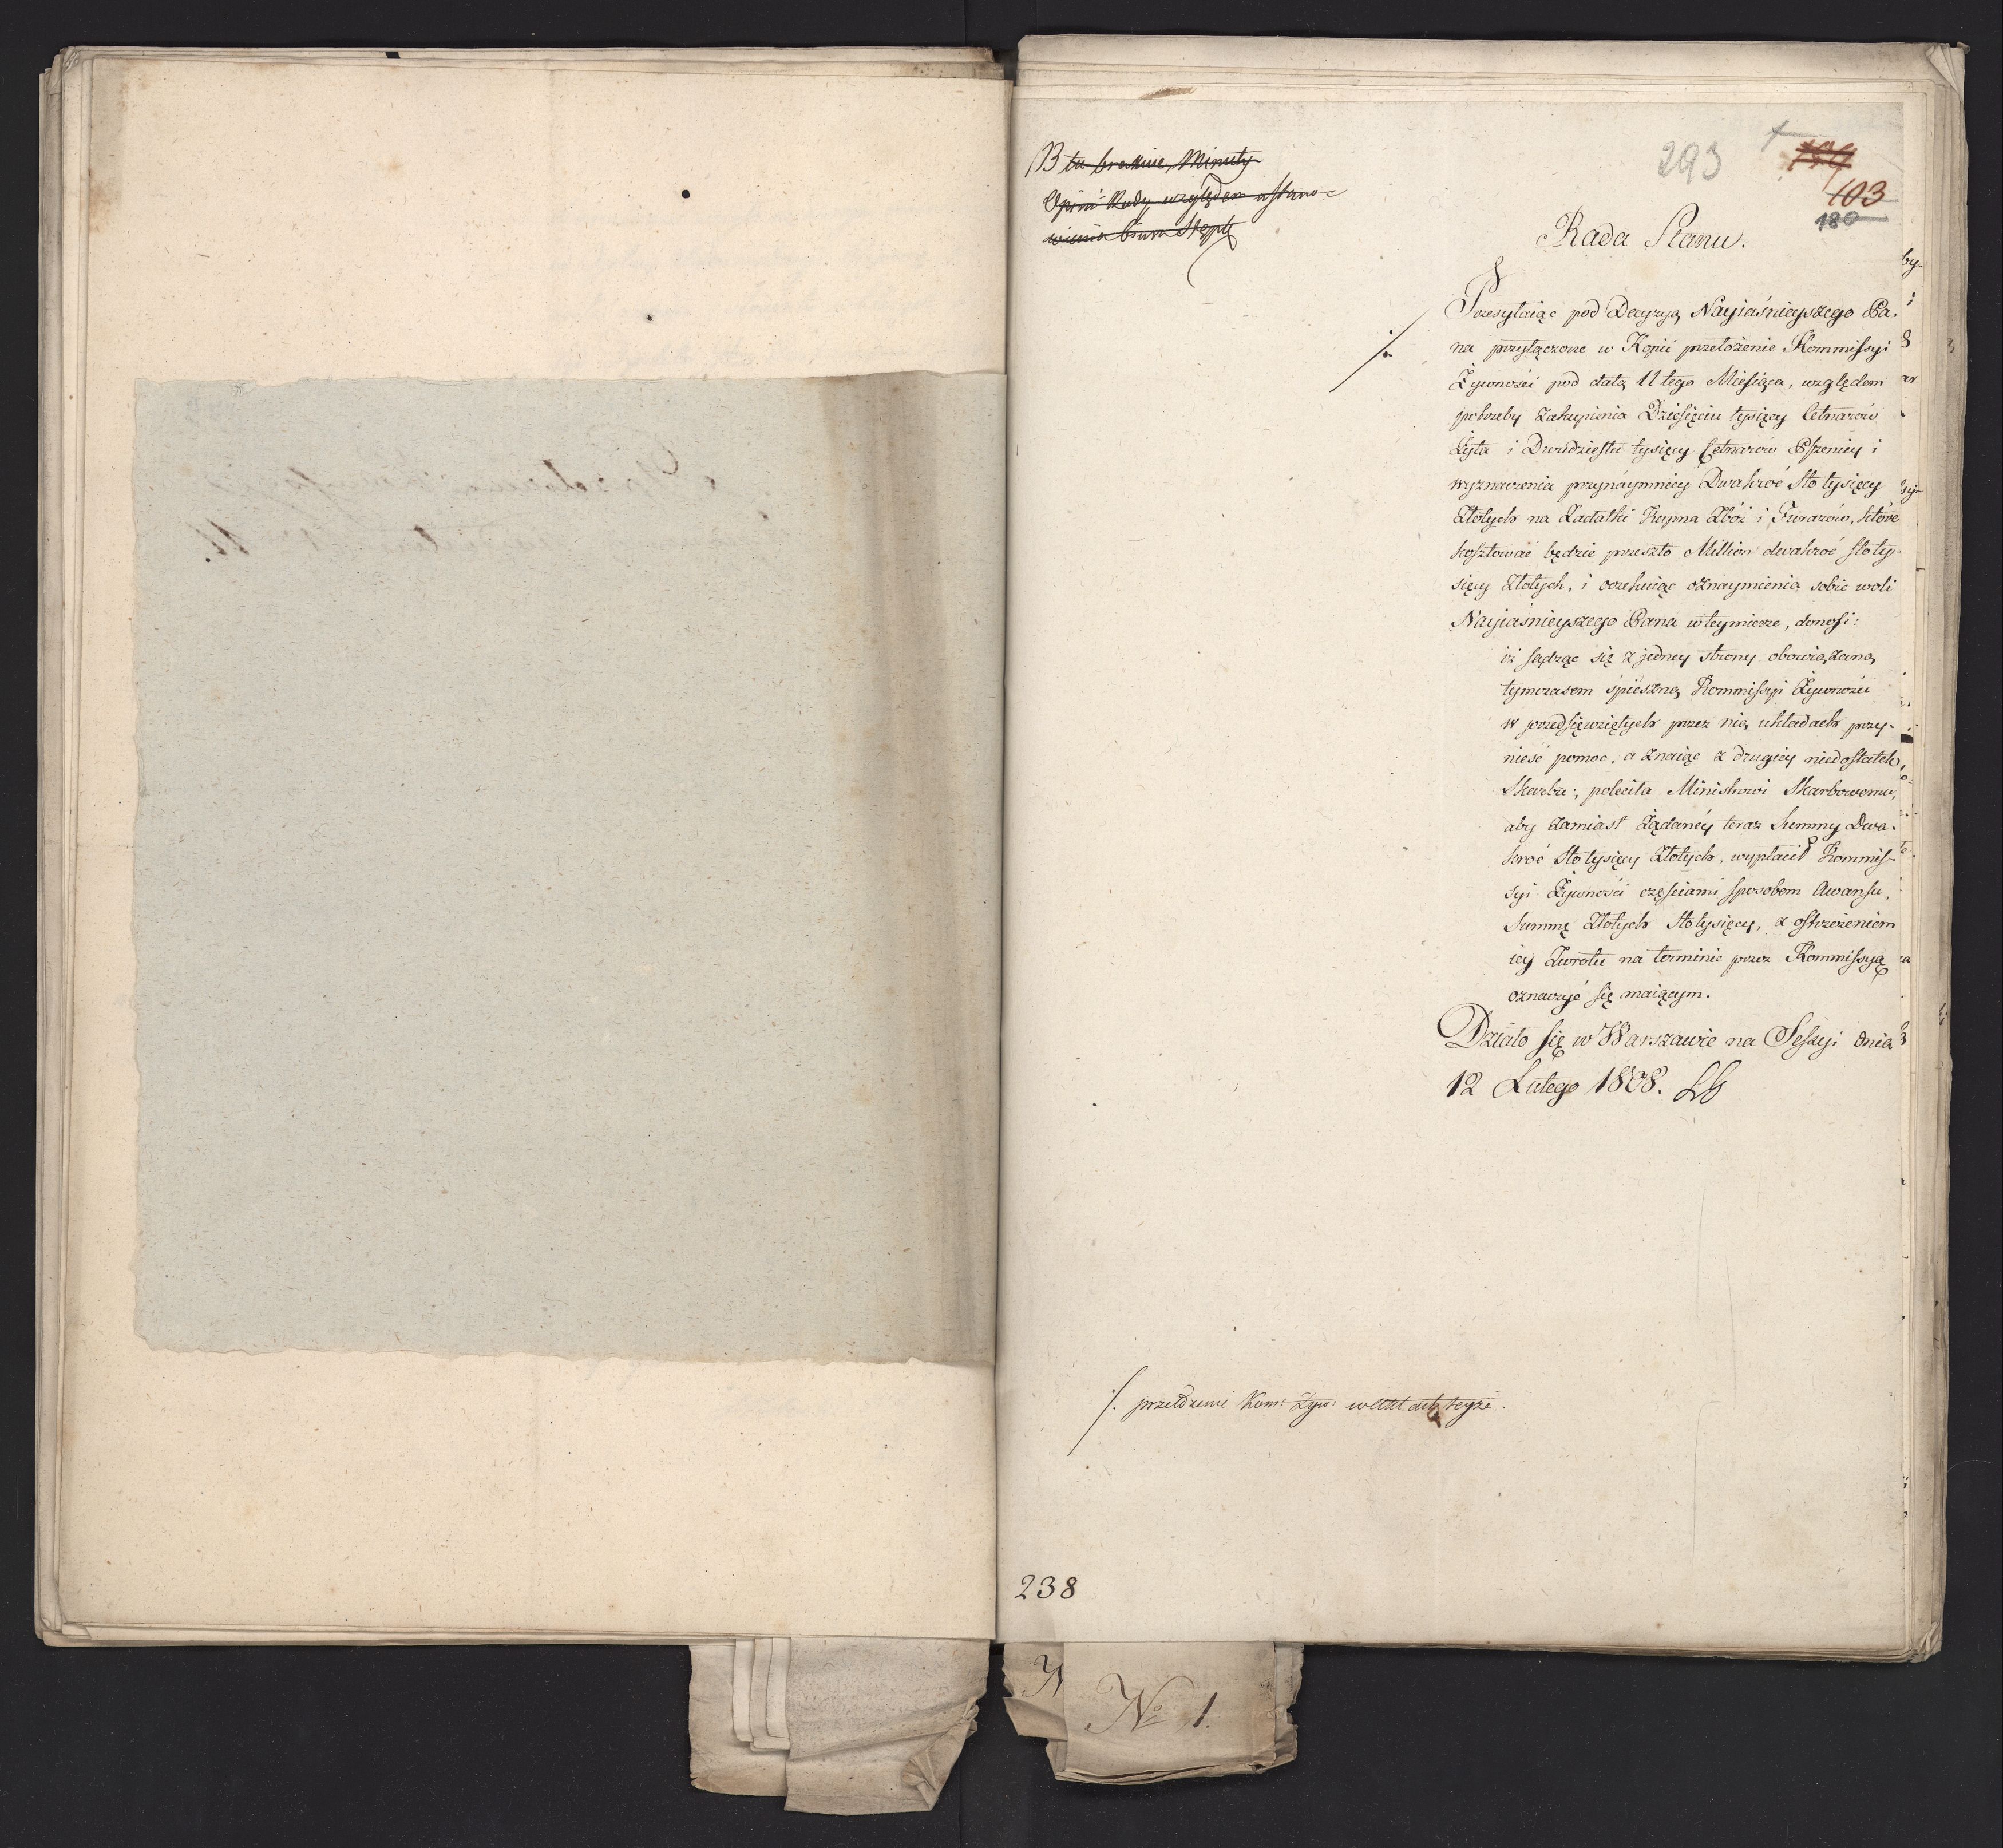 NB tu brakuie Minuty
Opinii Rady względem ustano-
wienia biura Stępla
293
103
180
Rada Stanu.
Przesyłaiąc pod Decyzyą Nayiaśnieyszego Pa-
na przyłączone w Kopii przełożenie Kommissyi
Żywności pod datą 11 tego Miesiąca, względem
potrzeby zakupienia Dziesięciu tysięcy Cetnarów
Żyta i Dwudziestu tysięcy Cetnarów Pszenicy i
wyznaczenia przynaymniey Dwakroć Sto tysięcy
Złotych na Zadatki Kupna Zbóż i Furazów, które
kosztować będzie przeszło Million dwakroć sto ty-
sięcy Złotych, i oczekuiąc oznaymienia sobie woli
Nayiaśnieyszego Pana w tey mierze, donosi:
iż sądząc się z jedney strony obowiązaną
tymczasem śpieszną Kommissyi Żywności
w przedsięwziętych przez nią układach przy-
nieść pomoc, a znaiąc z drugiey niedostatek
Skarbu; poleciła Ministrowi Skarbowemu,
aby zamiast żądanéy teraz Summy Dwa-
kroć Sto tysięcy Złotych, wypłacił Kommis-
syi Żywności częściami sposobem Awansu,
Summę Złotych Sto tysięcy, z ostrzeżeniem
iey Zwrotu na terminie przez Kommissyą
oznaczyć się maiącym.
Działo się w Warszawie na Sessyi dnia
12 Lutego 1808.
238
No 1.